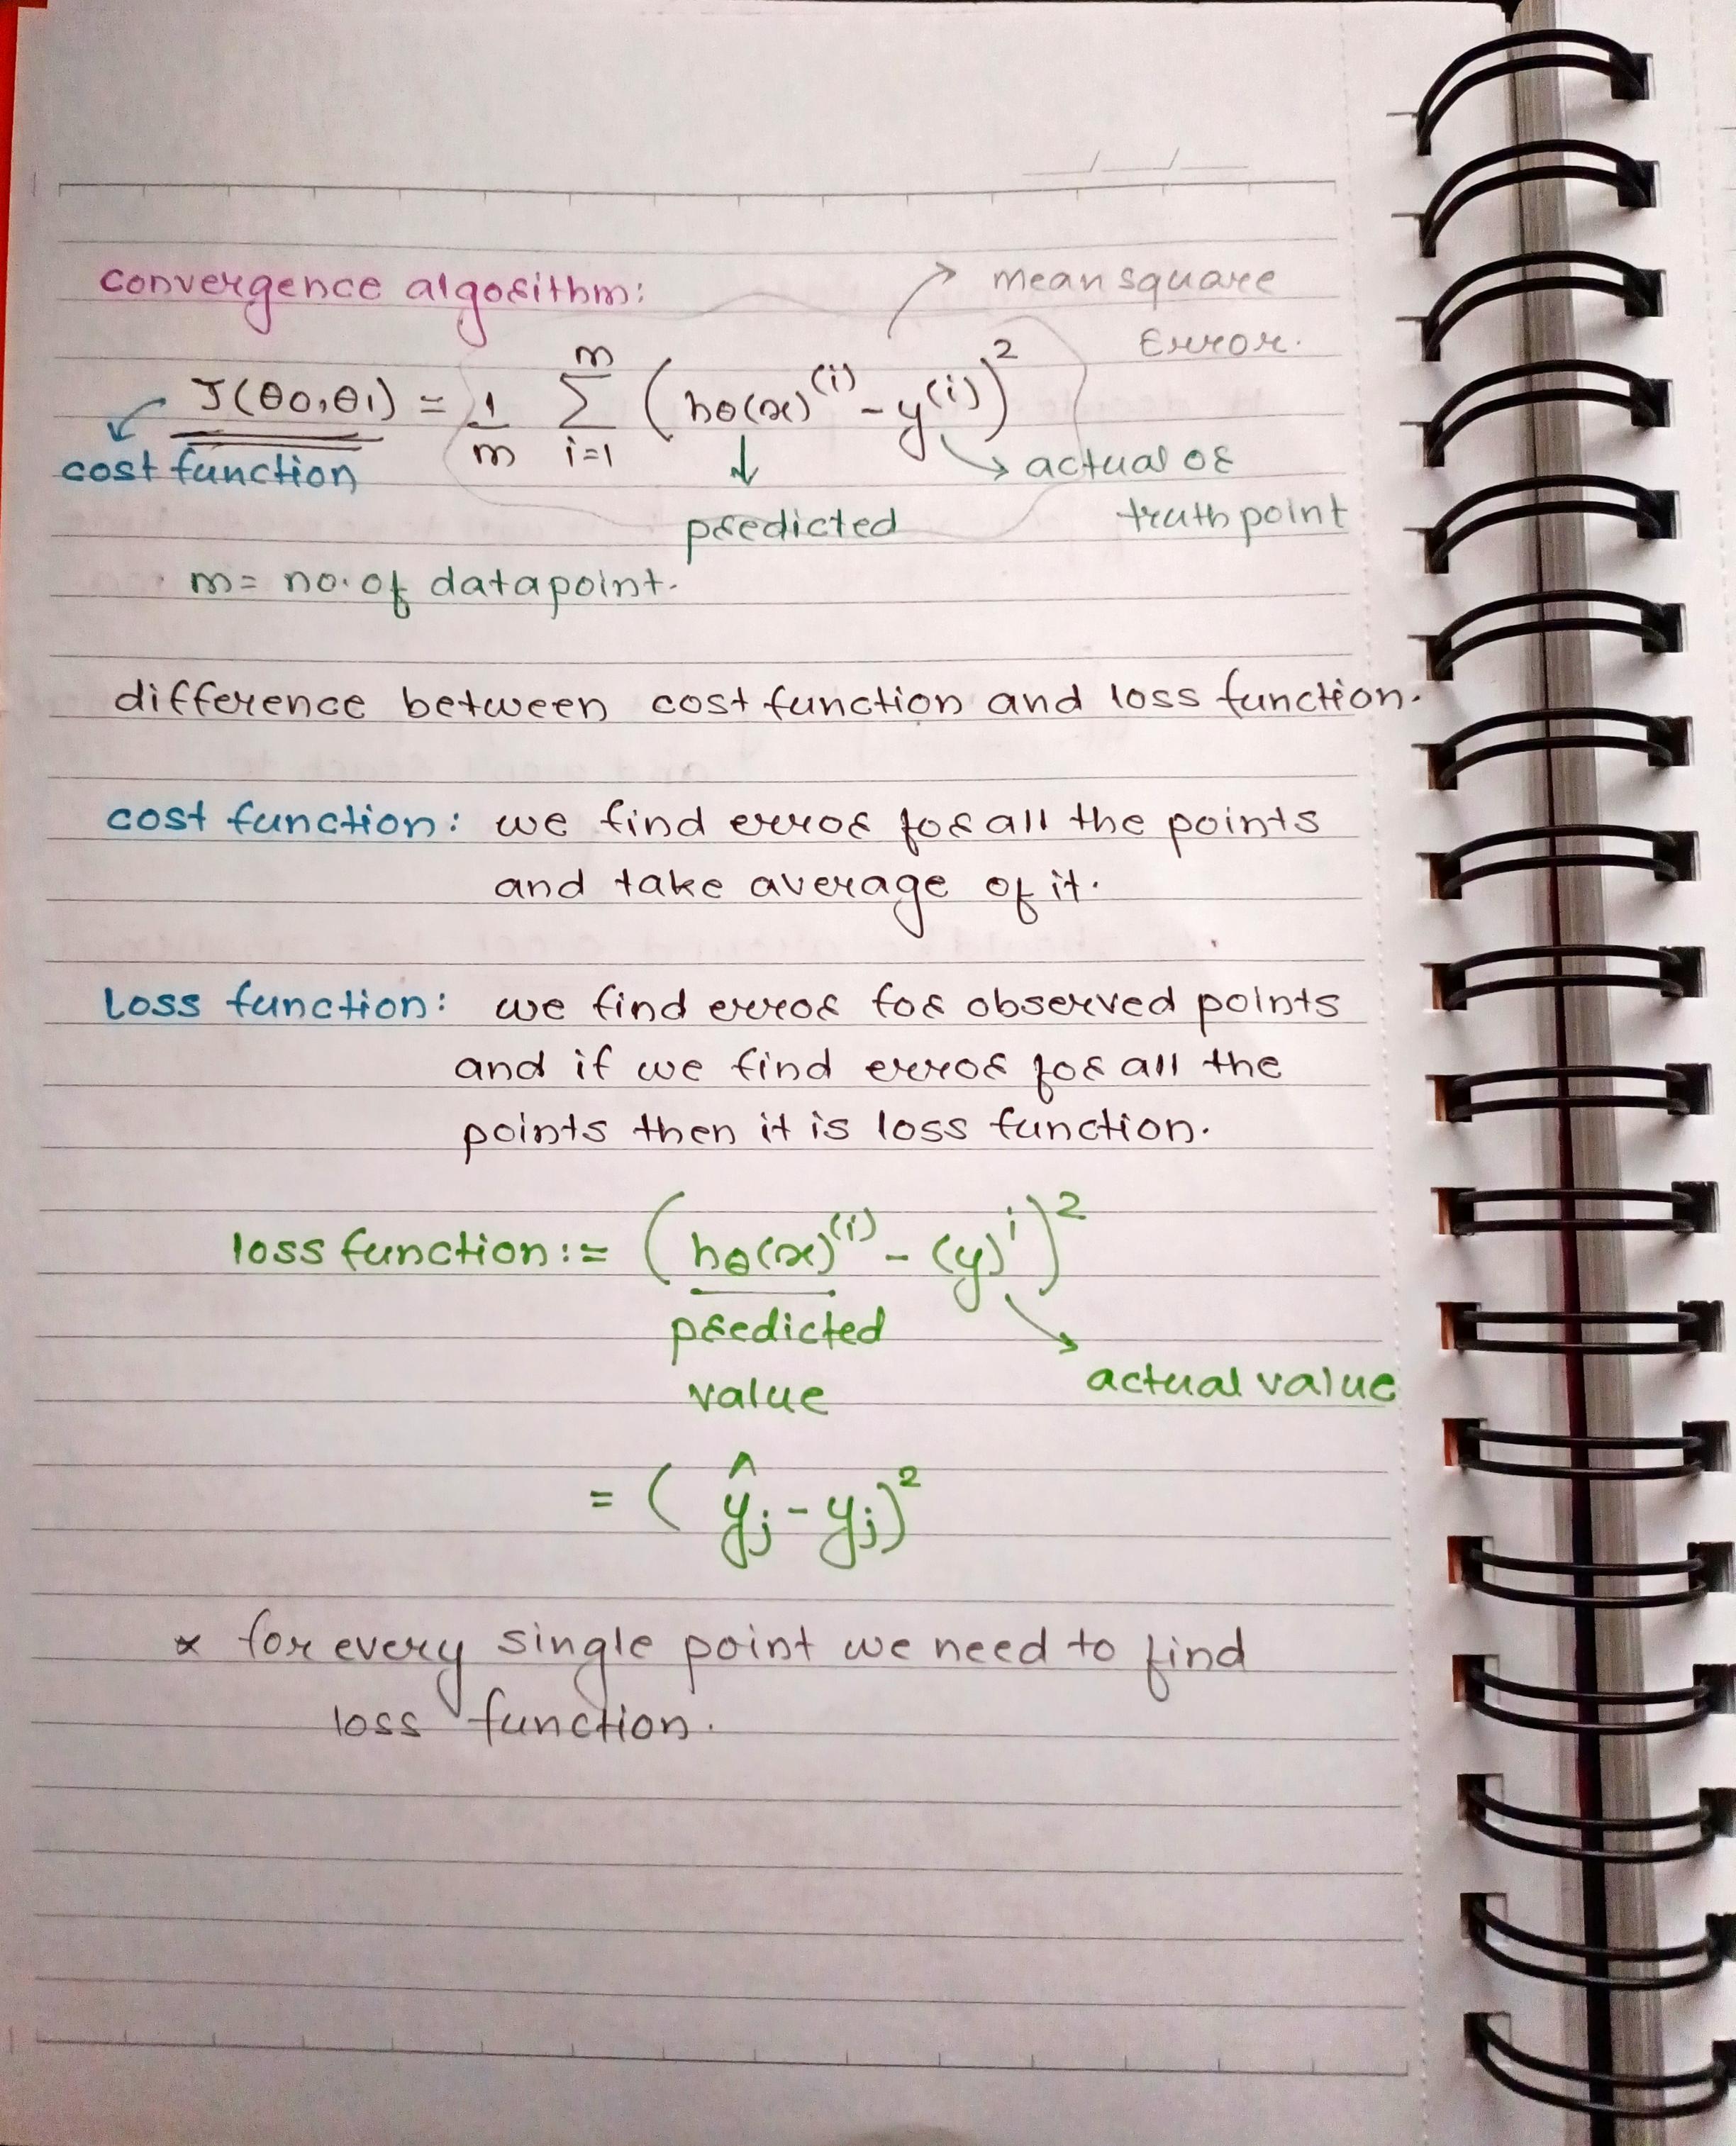 convergence algorithm:
mean square
Error.
J(θ0,θ1) = 1/m m Σ i=1 (hθ(x)^(i) - y^(i))^2
cost function
actual or
predicted
truth point
m= no. of datapoint.
difference between cost function and loss function.
cost function: we find error for all the points
and take average of it.
Loss function: we find error for observed points
and if we find error for all the
points then it is loss function.
loss function := (hθ(x)^(i) - (y)^i)^2
predicted
value
actual value
= (ŷj - yj)^2
* for every single point we need to find
loss function.